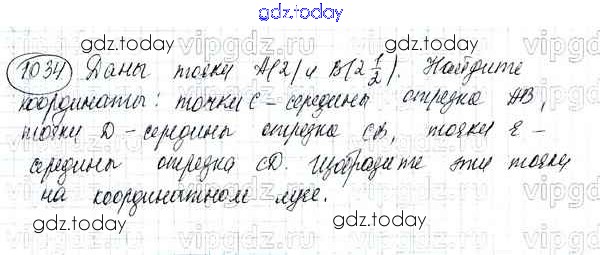 gdz.today
gdz.today
1034 Даны точки A(2) и B(2 1/2). Найдите
координаты: точки C - середины отрезка AB,
точки D - середины отрезка CB, точки E -
середины отрезка CD. Изобразите эти точки
на координатном луче.
gdz.today
gdz.today
gdz.today